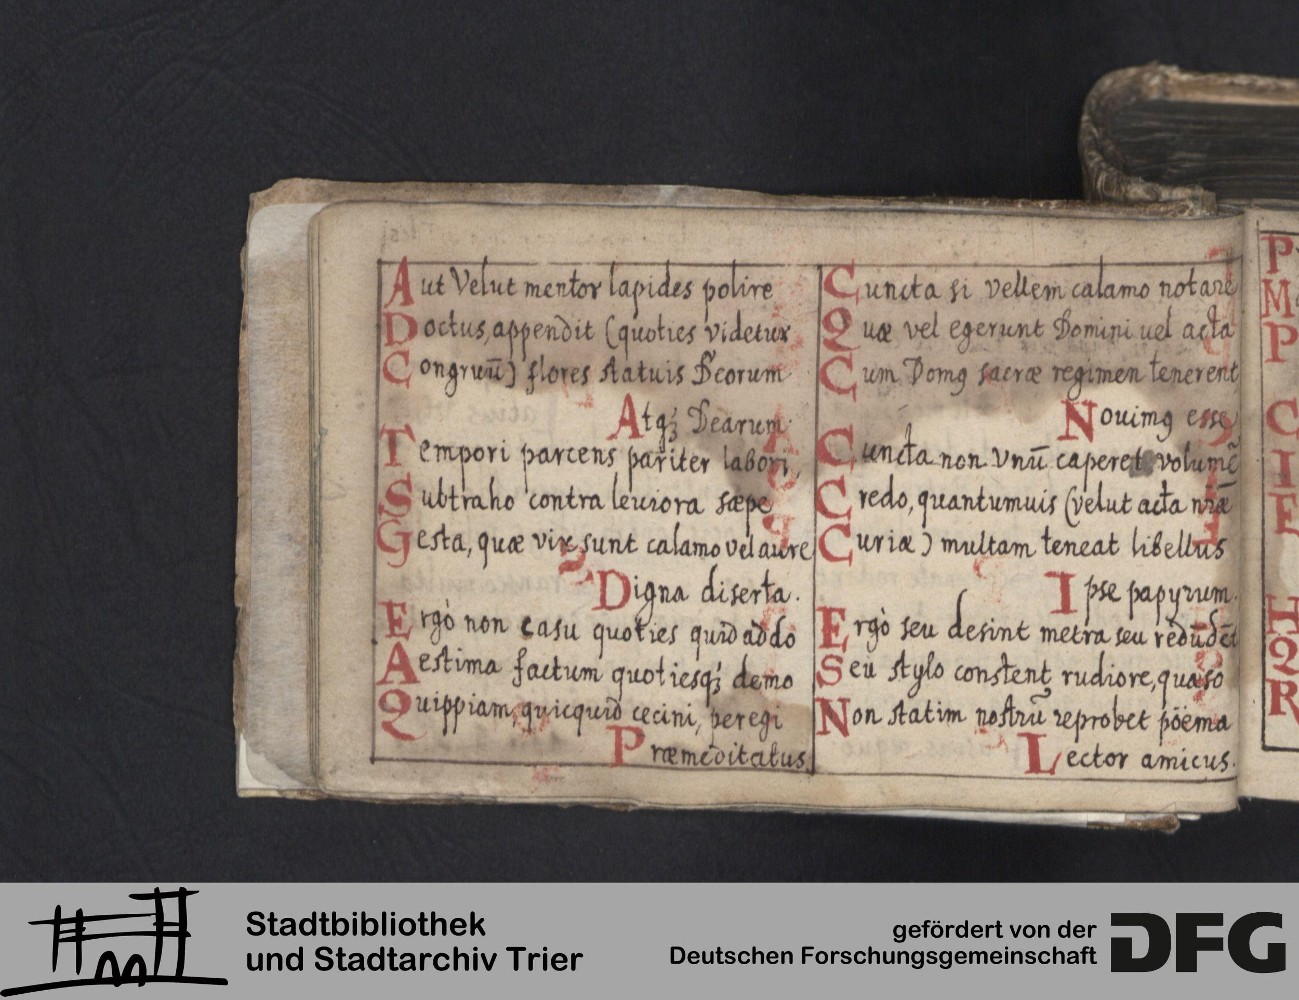 Aut Velut mentor lapides polire
Doctus, appendit (quoties videtur
Congruū) flores statuis Deorum
Atqȝ Dearum.
Tempori parcens pariter labori,
Subtraho contra leuiora sæpe
Gesta, quæ vix sunt calamo vel aure
Digna diserta.
Ergò non casu quoties quid addo
Aestima factum quotiesqȝ demo
Quippiam, quicquid cecini, peregi
Præmeditatus.
Cuncta si vellem calamo notare
Quæ vel egerunt Domini uel acta
Cum Domꝯ sacræ regimen tenerent
Nouimꝯ esse,
Cuncta non Vnū caperet volumē
Credo, quantumuis (velut acta nr̄æ
Curiæ) multam teneat libellus
Ipse papyrum.
Ergò seu desint metra seu redūdēt
Seu stylo constent rudiore, quæso
Non statim nostrū reprobet pöema
Lector amicus.
P
M
P
C
I
E
H
Q
R
Stadtbibliothek
und Stadtarchiv Trier
gefördert von der
Deutschen Forschungsgemeinschaft
DFG